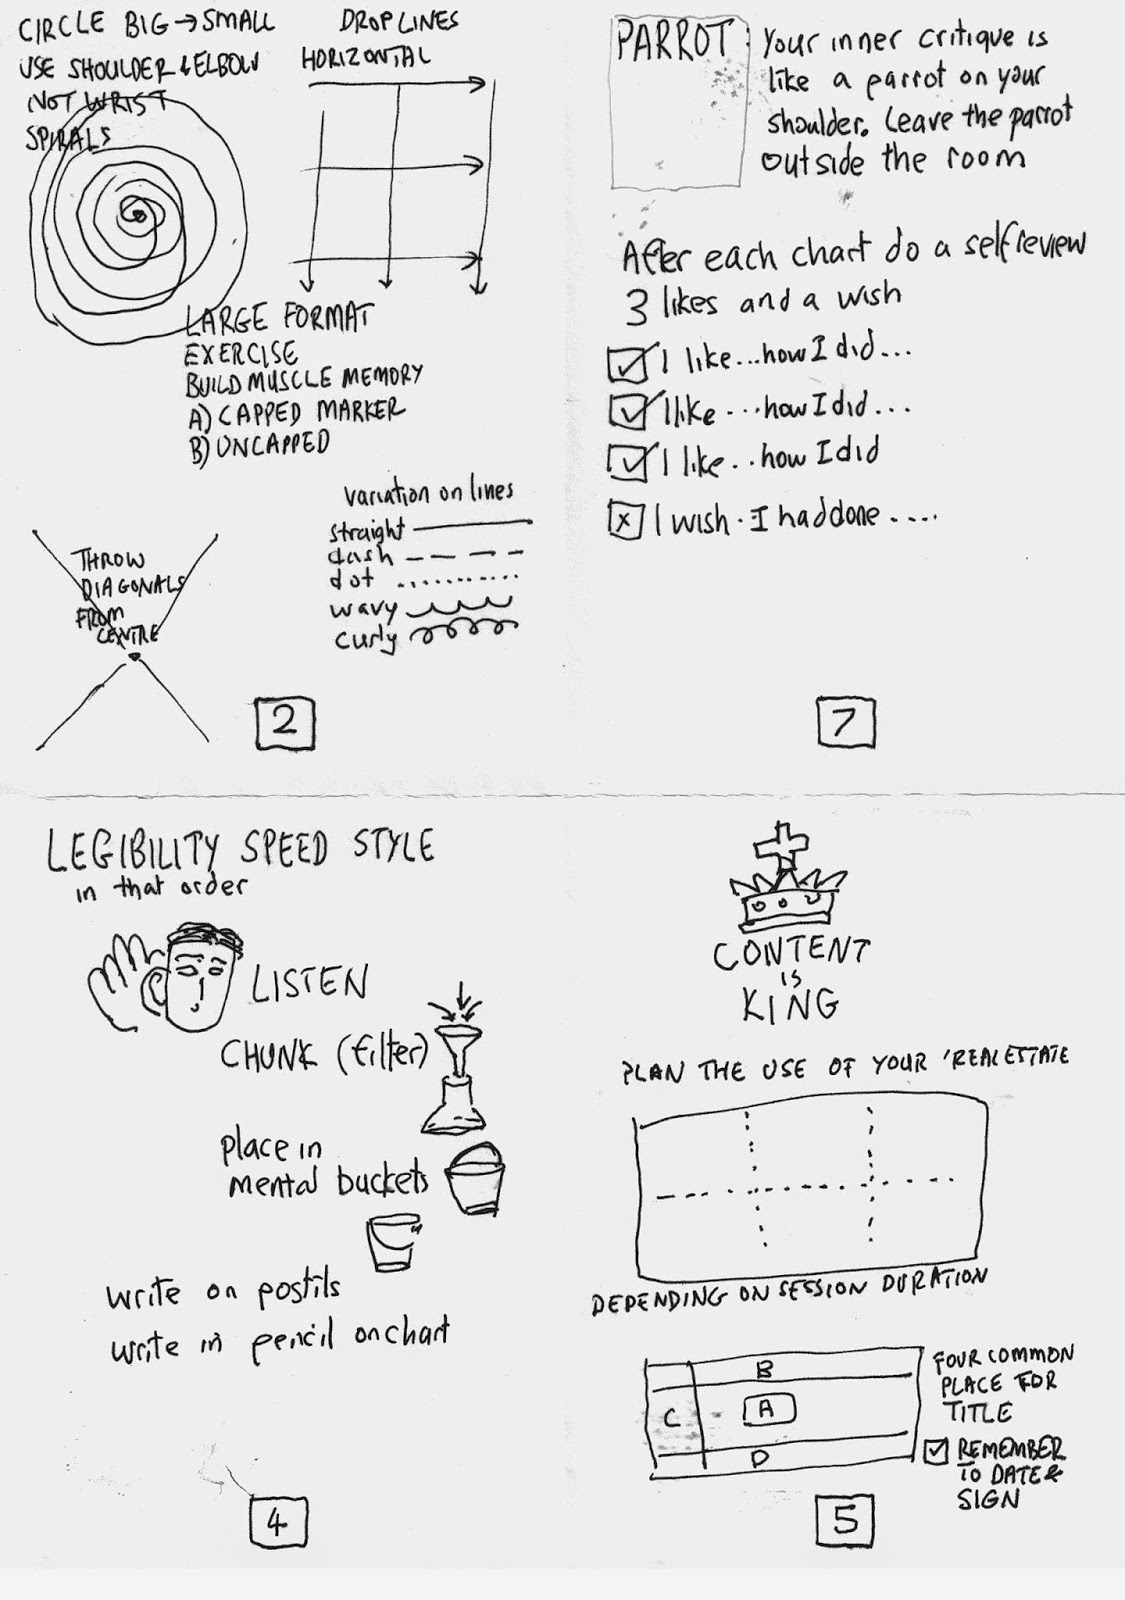 CIRCLE BIG → SMALL
USE SHOULDER & ELBOW
NOT WRIST
SPIRALS
DROP LINES
HORIZONTAL
LARGE FORMAT
EXERCISE
BUILD MUSCLE MEMORY
A) CAPPED MARKER
B) UNCAPPED
variation on lines
straight
dash
dot
wavy
curly
THROW
DIAGONALS
FROM
CENTRE
2
PARROT: Your inner critique is
like a parrot on your
shoulder. Leave the parrot
outside the room
After each chart do a self review
3 likes and a wish
I like...how I did...
I like...how I did...
I like...how I did
x I wish. I had done ....
7
LEGIBILITY SPEED STYLE
in that order
LISTEN
CHUNK (filter)
place in
mental buckets
write on postits
write in pencil on chart
4
CONTENT
IS
KING
PLAN THE USE OF YOUR 'REAL ESTATE
DEPENDING ON SESSION DURATION
B
C
A
D
FOUR COMMON
PLACE FOR
TITLE
REMEMBER
TO DATE &
SIGN
5